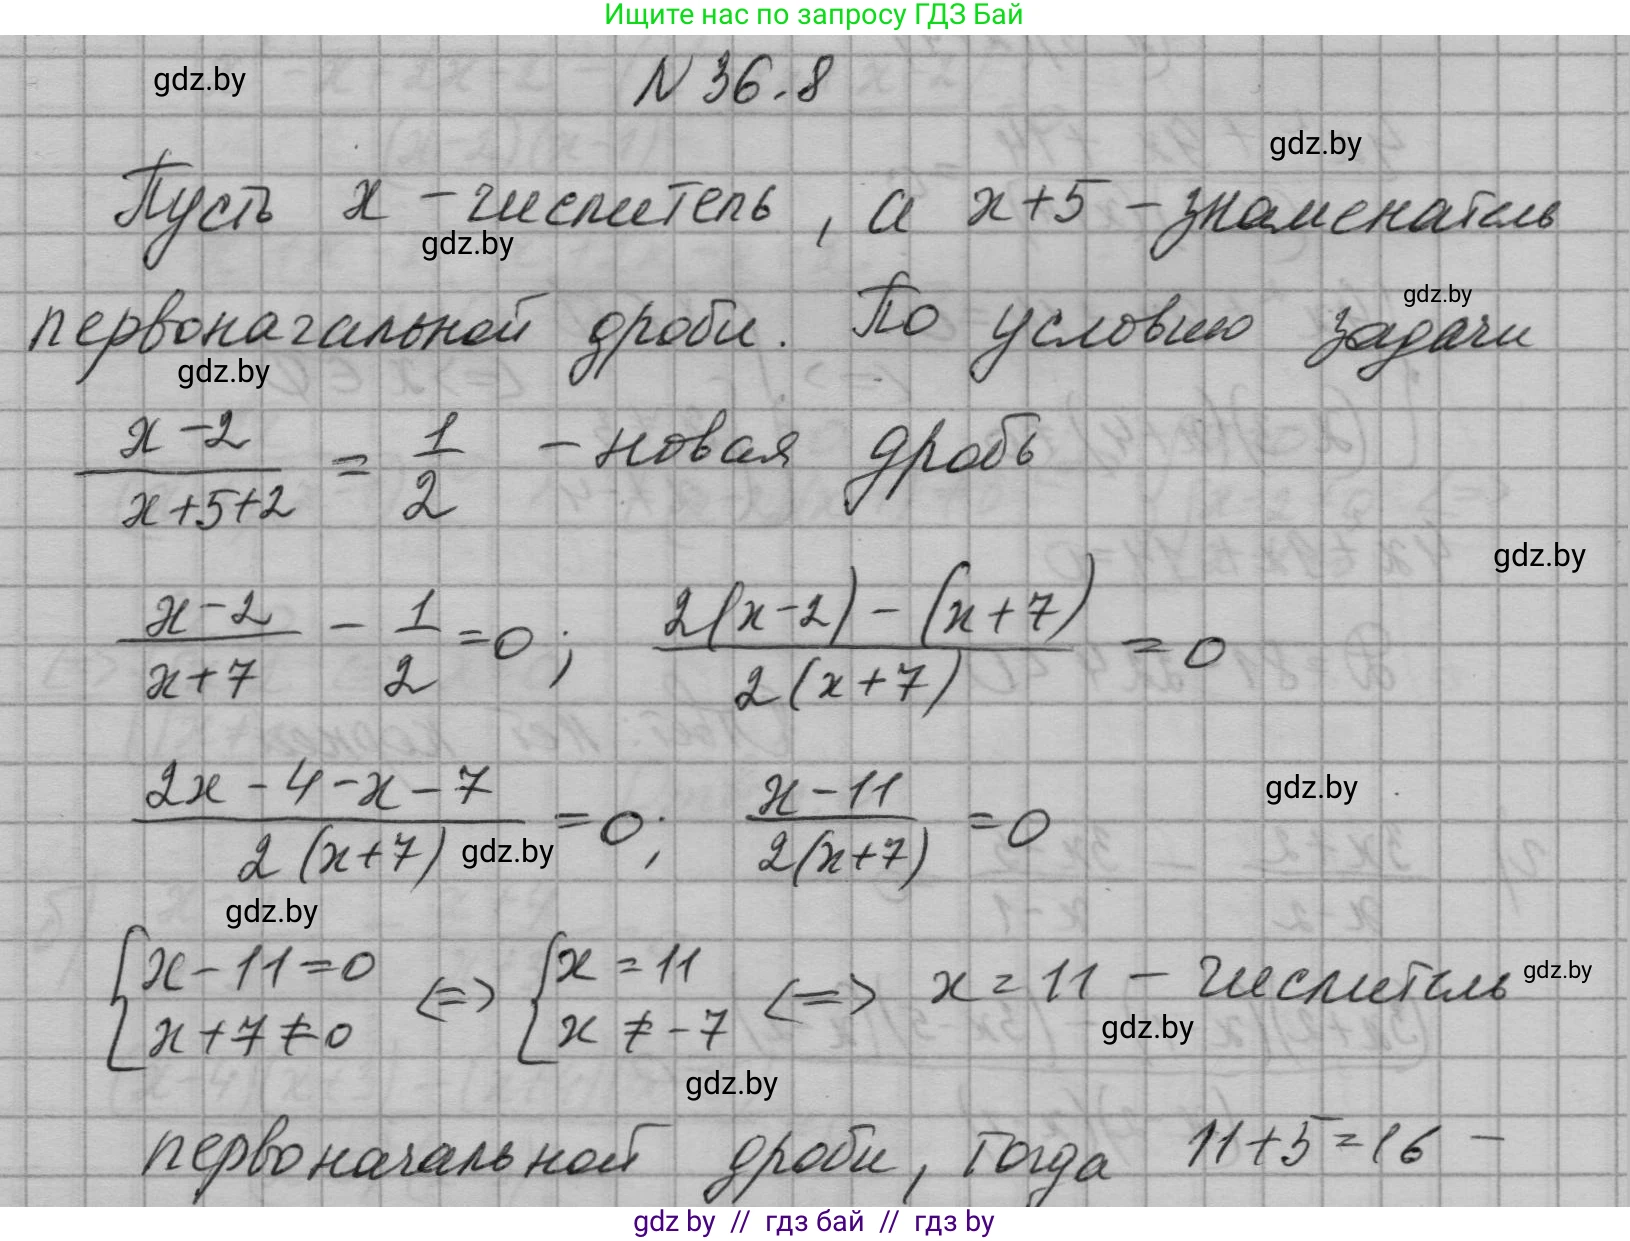 Ищите нас по запросу ГДЗ Бай
gdz.by
N 36.8
gdz.by
Пусть x - числитель, а x+5 - знаменатель
gdz.by
первоначальной дроби. По условию задачи
gdz.by
gdz.by
(x-2)/(x+5+2) = 1/2 - новая дробь
gdz.by
(x-2)/(x+7) - 1/2 = 0; (2(x-2)-(x+7))/(2(x+7)) = 0
(2x-4-x-7)/(2(x+7)) = 0; (x-11)/(2(x+7)) = 0
gdz.by
gdz.by
gdz.by
{x-11=0 <=> {x=11 <=> x=11 - числитель
gdz.by
x+7≠0 x≠-7
gdz.by
gdz.by
первоначальной дроби, тогда 11+5=16 -
gdz by // гдз бай // гдз by